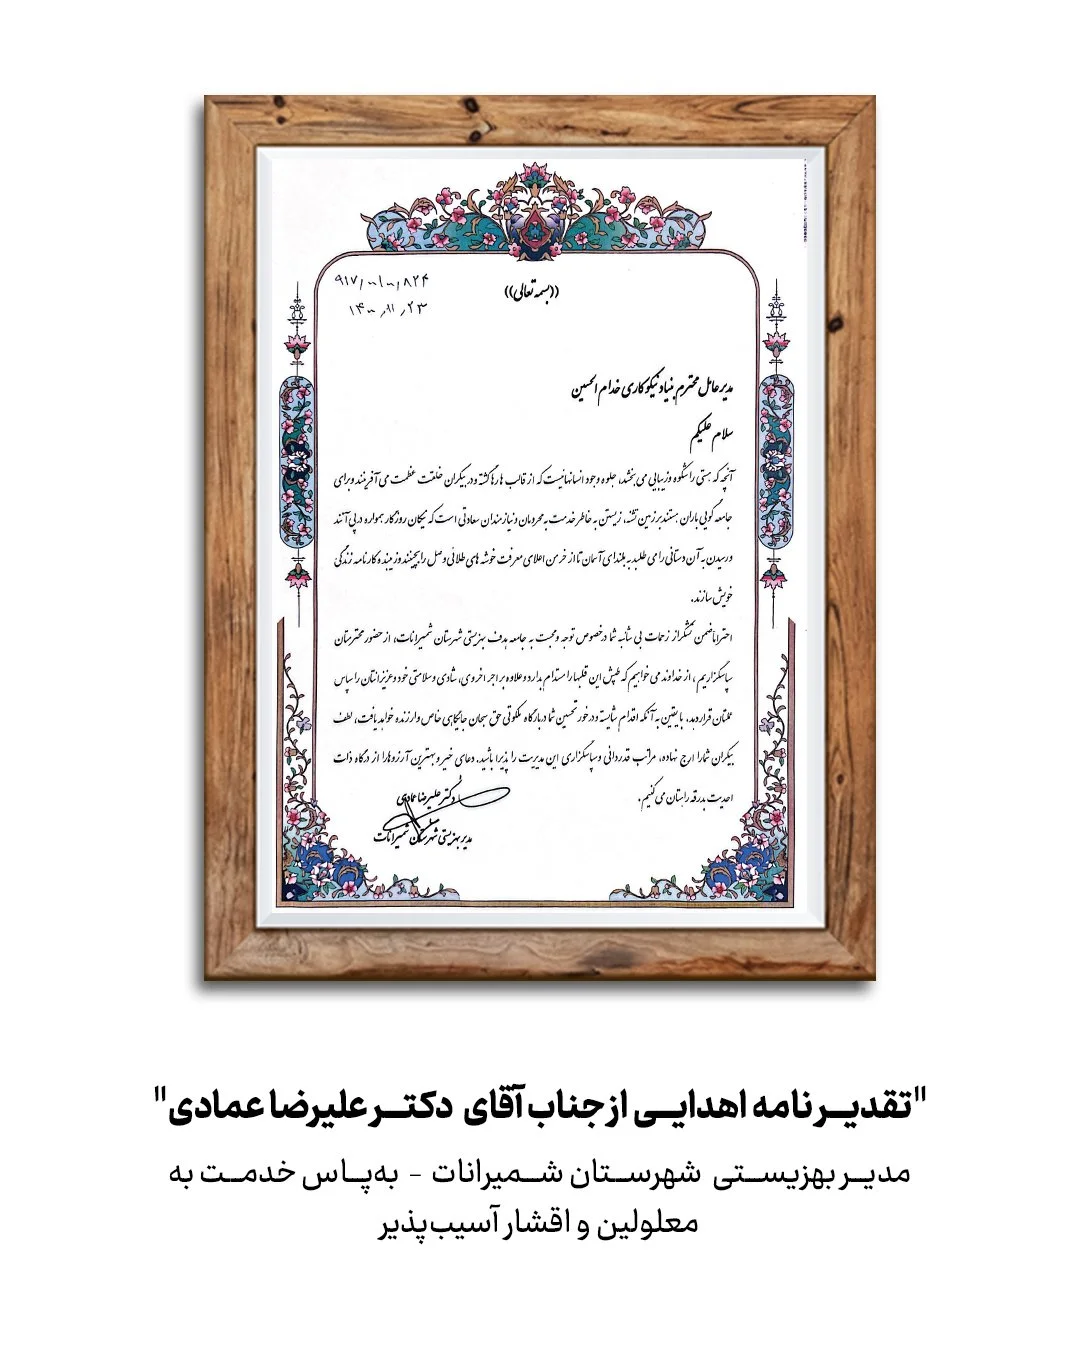 ۹۱۷/۰۰/۰۰/۸۲۴
۱۴۰۰/۱۱/۲۳
((بسمه تعالی))
مدیر عامل محترم بنیاد نیکوکاری خدام الحسین
سلام علیکم
آنچه که هستی را شکوه و زیبایی می بخشد، جلوه وجود انسانهائیست که از قالب ها رها گشته و در بیکران خلقت عظمت می آفرینند و برای
جامعه گویی باران هستند بر زمین تشنه، زیستن به خاطر خدمت به محرومان و نیازمندان سعادتی است که نیکان روزگار همواره در پی آنند
و رسیدن به آن دستانی را می طلبد به بلندای آسمان تا از خرمن اعلای معرفت خوشه های طلائی وصل را بچینند و زیبنده کارنامه زندگی
خویش سازند.
احتراما ضمن تشکر از زحمات بی شائبه شما در خصوص توجه و محبت به جامعه هدف بهزیستی شهرستان شمیرانات، از حضور محترمتان
سپاسگزاریم ، از خداوند می خواهیم که طپش این قلبها را مستدام بدارد و علاوه بر اجر اخروی، شادی و سلامتی خود و عزیزانتان را سپاس
عملتان قرار دهد. با یقین به آنکه اقدام شایسته و در خور تحسین شما در بارگاه ملکوتی حق سبحان جایگاهی خاص و ارزنده خواهد یافت، لطف
بیکران شما را ارج نهاده، مراتب قدردانی و سپاسگزاری این مدیریت را پذیرا باشید. دعای خیر و بهترین آرزوها را از درگاه ذات
احدیت بدرقه راهتان می کنیم.
دکتر علیرضا عمادی
مدیر بهزیستی شهرستان شمیرانات
"تقدیرنامه اهدایی از جناب آقای دکتر علیرضا عمادی"
مدیر بهزیستی شهرستان شمیرانات - به‌پاس خدمت به
معلولین و اقشار آسیب‌پذیر